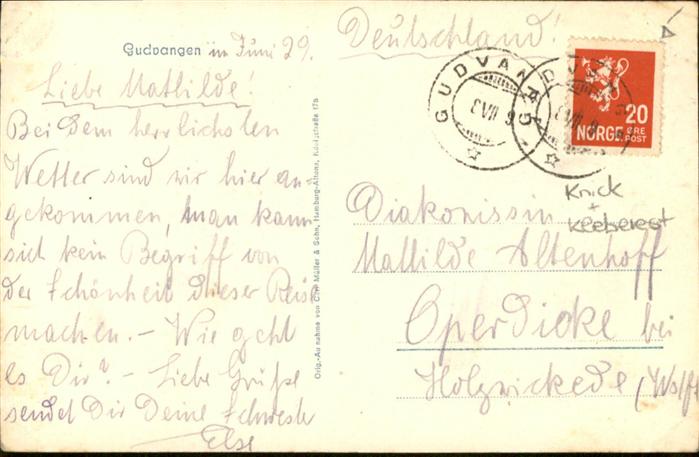 Gudvangen im Juni 29.
Liebe Mathilde!
Bei dem herrlichsten
Wetter sind wir hier an-
gekommen, man kann
sich kein Begriff von
der Schönheit dieser Reise
machen. - Wie geht
es Dir? - Liebe Grüße
sendet Dir Deine Schwester
Else
Orig.-Aufnahme von Carl Müller & Sohn, Hamburg-Altona, 175
Deutschland!
GUDVANGEN
VII
20
NORGE ØRE
POST
Knick
+
Kleberest
Diakonissin
Mathilde Altenhoff
Operdicke bei
Holzwickede (Wstf